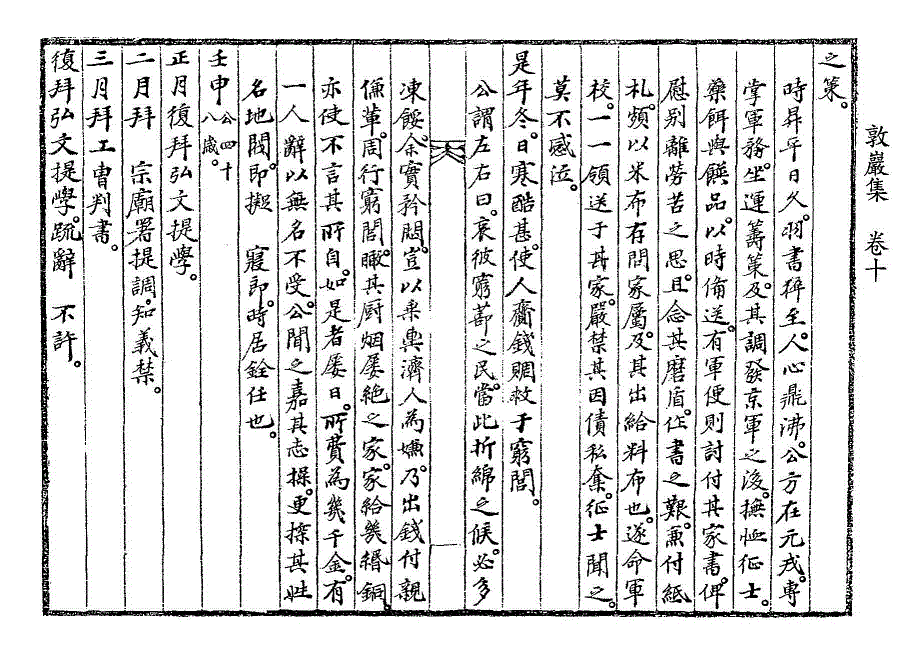 敦巖集　卷十
之策。
時昇平日久。羽書狎至。人心鼎沸。公方在元戎。專
掌軍務。坐運籌策。及其調發京軍之後。撫恤征士。
藥餌與饌品。以時備送。有軍便則討付其家書。俾
慰别離勞苦之思。且念其磨盾作書之艱。兼付紙
札。頻以米布存問家屬。及其出給料布也。遂命軍
校。一一領送于其家。嚴禁其因債私奪。征士聞之。
莫不感泣。
是年冬。日寒酷甚。使人齎錢賙救于窮閭。
公謂左右曰。哀彼窮蔀之民。當此折綿之候。必多
凍餒。余實矜悶。豈以乘輿濟人為嫌。乃出錢付親
傔輩。周行窮閭。瞰其厨烟屢絶之家。家給幾緡銅。
亦使不言其所自。如是者屢日。所費為幾千金。有
一人辭以無名不受。公聞之。嘉其志操。更探其姓
名地閥。即擬　寢郎。時居銓任也。
壬申公四十八歲。
正月復拜弘文提學。
二月拜　宗廟署提調。知義禁。
三月拜工曹判書。
復拜弘文提學。疏辭　不許。